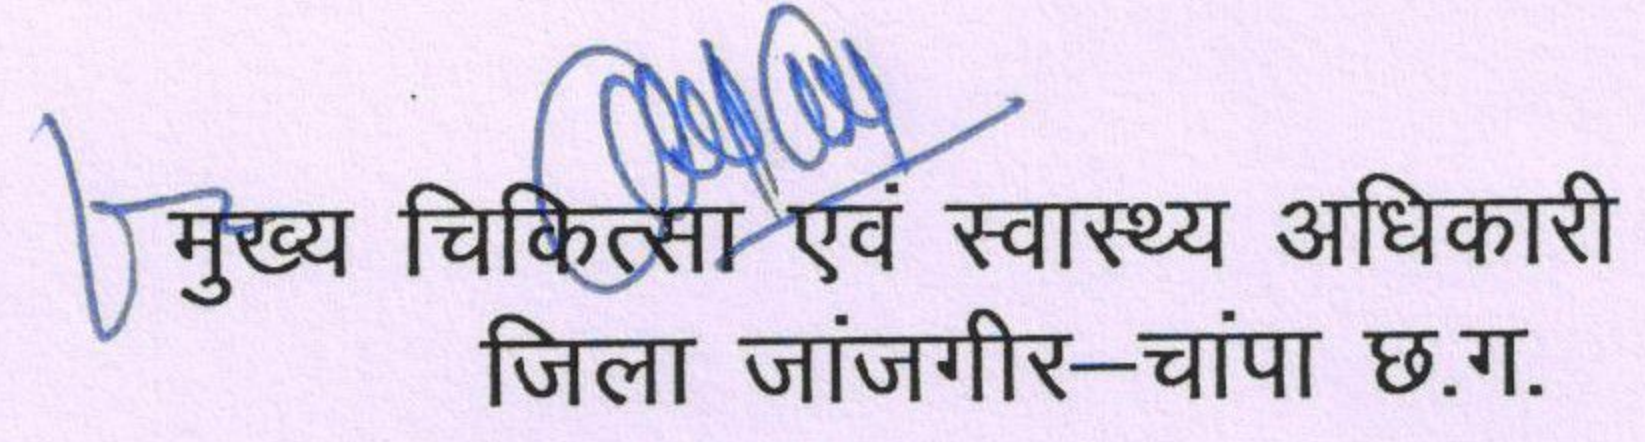 मुख्य चिकित्सा एवं स्वास्थ्य अधिकारी
जिला जांजगीर–चांपा छ.ग.